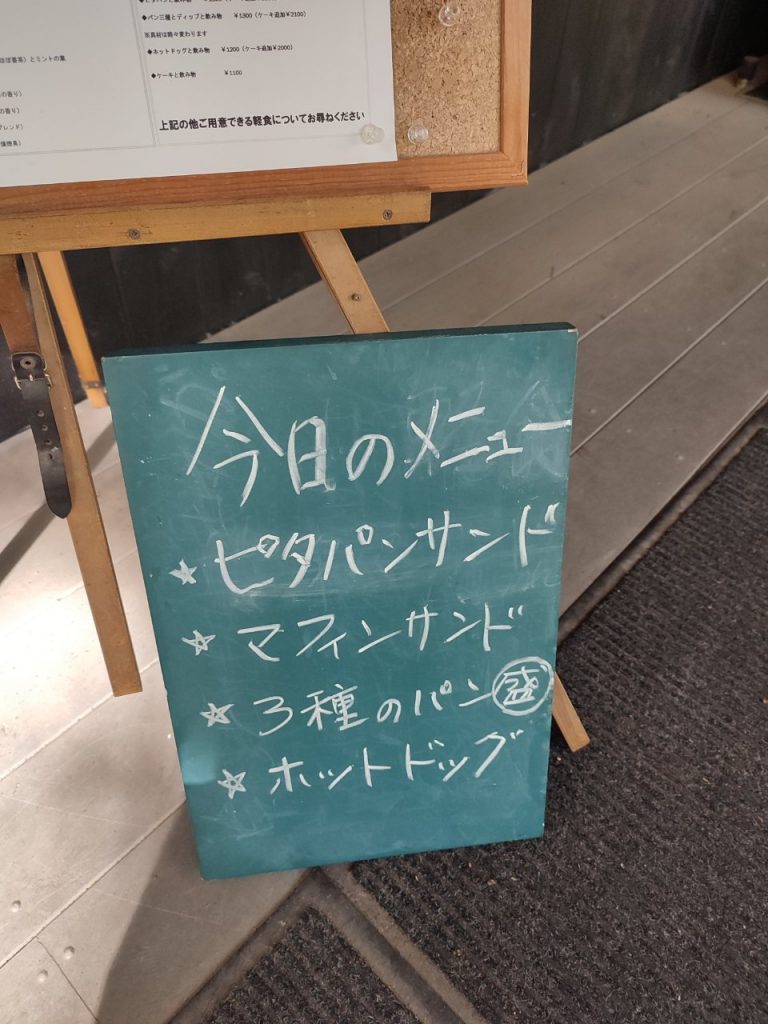 ◆パン三種とディップと飲み物 ¥1300（ケーキ追加¥2100）
※具材は時々変わります
◆ホットドッグと飲み物 ¥1200（ケーキ追加¥2000）
◆ケーキと飲み物 ¥1100
上記の他ご用意できる軽食についてお尋ねください
ほぼ番茶）とミントの葉
の香り）
の香り）
ブレンド）
今日のメニュー
☆ピタパンサンド
☆マフィンサンド
☆3種のパン盛
☆ホットドッグ